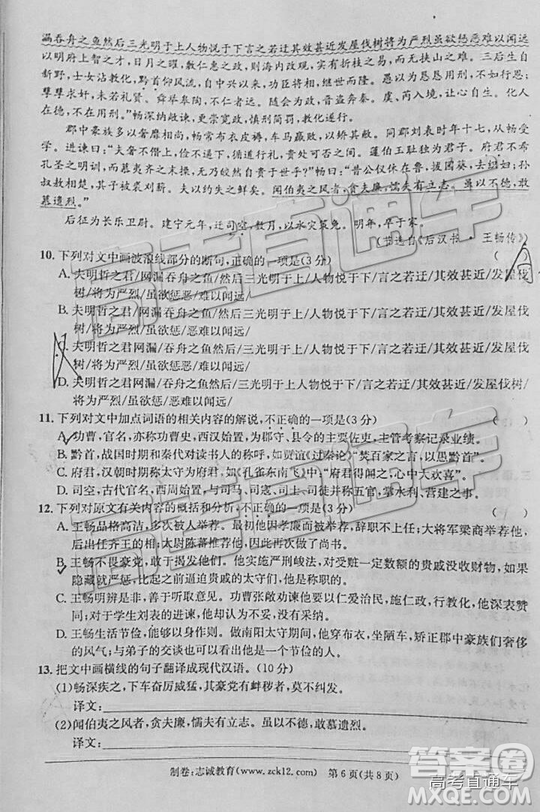 漏吞舟之鱼然后三光明于上人物悦于下言之若迂其效甚近发屋伐树将为严烈虽欲惩恶难以闻远
以明府上智之才，日月之曜，敷仁惠之政，则海内改观，实有折枝之易，而无挟山之难。三后生自
新野，士女沾教化，黔首仰风流，自中兴以来，功臣将相，继世而隆。愚以为恳恳用刑，不如行恩；
孳孳求奸，未若礼贤。舜举皋陶，不仁者远。随会为政，晋盗奔秦。虞、芮入境，让心自生。化人
在德，不在用刑。”畅深纳敬谏，更崇宽政，慎刑简罚，教化遂行。
郡中豪族多以奢靡相尚，畅常布衣皮褥，车马羸败，以矫其敝。同郡刘表时年十七，从畅受
学。进谏曰：“夫奢不僭上，俭不逼下，循道行礼，贵处可否之间。蘧伯玉耻独为君子。府君不希
孔圣之明训，而慕夷齐之末操，无乃皎然自贵于世乎？”畅曰：“昔公仪休在鲁，拔园葵，去织妇；孙
叔敖相楚，其子被裘刈薪。夫以约失之鲜矣。闻伯夷之风者，贪夫廉，懦夫有立志。虽以不德，敢
慕遗烈。”
后征为长乐卫尉。建宁元年，迁司空，数月，以水灾策免。明年，卒于家。
《后汉书·王畅传》）
10. 下列对文中画波浪线部分的断句，正确的一项是（3分）（ ）
A. 夫明哲之君/网漏吞舟之鱼/然后三光明于上/人物悦于下/言之若迂/其效甚近/发屋伐
树/将为严烈/虽欲惩恶/难以闻远/
B. 夫明哲之君网漏/吞舟之鱼然后/三光明于上/人物悦于下/言之若迂/其效甚近/发屋伐
树/将为严烈/虽欲惩恶/难以闻远/
C. 夫明哲之君/网漏吞舟之鱼/然后三光明于上/人物悦于下/言之若迂/其效甚近/发屋伐
树将为/严烈虽欲惩恶/难以闻远/
D. 夫明哲之君网漏/吞舟之鱼然后/三光明于上/人物悦于下/言之若迂/其效甚近/发屋伐树/
将为严烈/虽欲惩恶/难以闻远/
11. 下列对文中加点词语的相关内容的解说，不正确的一项是（3分）（ ）
A. 功曹，官名，亦称功曹史，西汉始置，为郡守、县令的主要佐吏，主管考察记录业绩。
B. 黔首，战国时期和秦代对百姓的称呼，如贾谊《过秦论》“焚百家之言，以愚黔首”。
C. 府君，汉代时期称太守为府君，如《孔雀东南飞》中“府君得闻之，心中大欢喜”。
D. 司空，古代官名，西周始置，与司马、司寇、司士、司徒并称五官，掌水利、营建之事。
12. 下列对原文有关内容的概括和分析，不正确的一项是（3分）（ ）
A. 王畅品格高洁，多次被人举荐。最初他因为清廉正直被举荐，辞职不上任；大将军梁商举荐他，
后出任齐王相；太尉陈蕃推荐他，因此再次担任尚书。
B. 王畅不畏豪党，敢于发摘他们。他实施严刑峻法，对受赃一定数额的贵戚没收财物，如果
隐藏就严惩；相对于先前惧怕贵戚的太守们，他是称职的。
C. 王畅明辨是非，善于听取意见。功曹张敞劝谏他要以仁爱治民，他认为有道理，欣然采
纳；对于学生刘表的进谏，他却认为不妥，没有采纳。
D. 王畅生活节俭，能够以身作则。做南阳太守期间，他布衣皮褥，坐陋车，矫正郡中豪族的奢靡
风气；与弟子的交谈可以看出他也非常重视自己的节俭名声。
13. 把文中画横线的句子翻译成现代汉语。（10分）
（1）畅深疾之，下车奋厉威猛，其豪党有衅秽者，莫不纠发。
译文：
（2）闻伯夷之风者，贪夫廉，懦夫有立志。虽以不德，敢慕遗烈。
译文：
制卷：志诚教育（www.zck12.com） 第6页（共8页）
高考直通车
答案圈
MXQE.COM